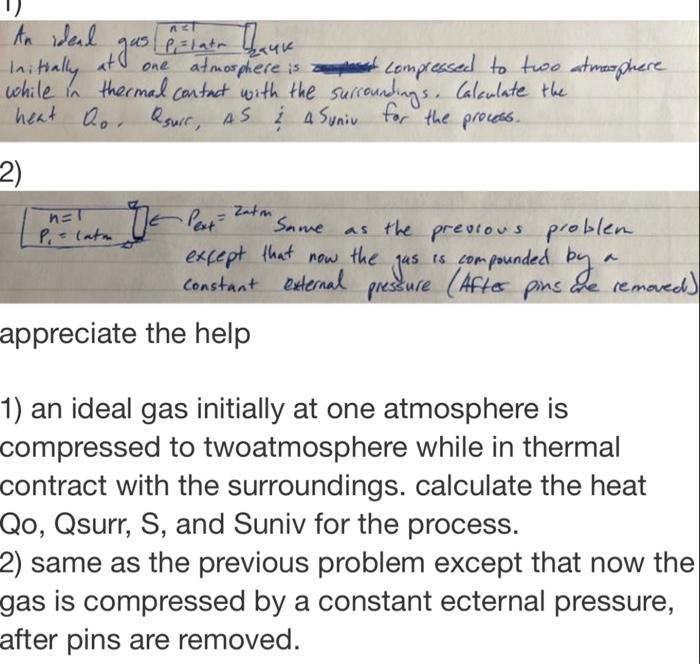 1)
n=1
An ideal gas P₁=1atm
Initially at one atmosphere is compressed to two atmosphere
while in thermal contact with the surroundings. Calculate the
heat Q₀, Qsurr, ΔS & ΔSuniv for the process.
2)
n=1
P₁ = 1atm
← Pext = 2atm Same as the previous problem
except that now the gas is compounded by a
constant external pressure (After pins are removed)
appreciate the help
1) an ideal gas initially at one atmosphere is
compressed to twoatmosphere while in thermal
contract with the surroundings. calculate the heat
Qo, Qsurr, S, and Suniv for the process.
2) same as the previous problem except that now the
gas is compressed by a constant ecternal pressure,
after pins are removed.